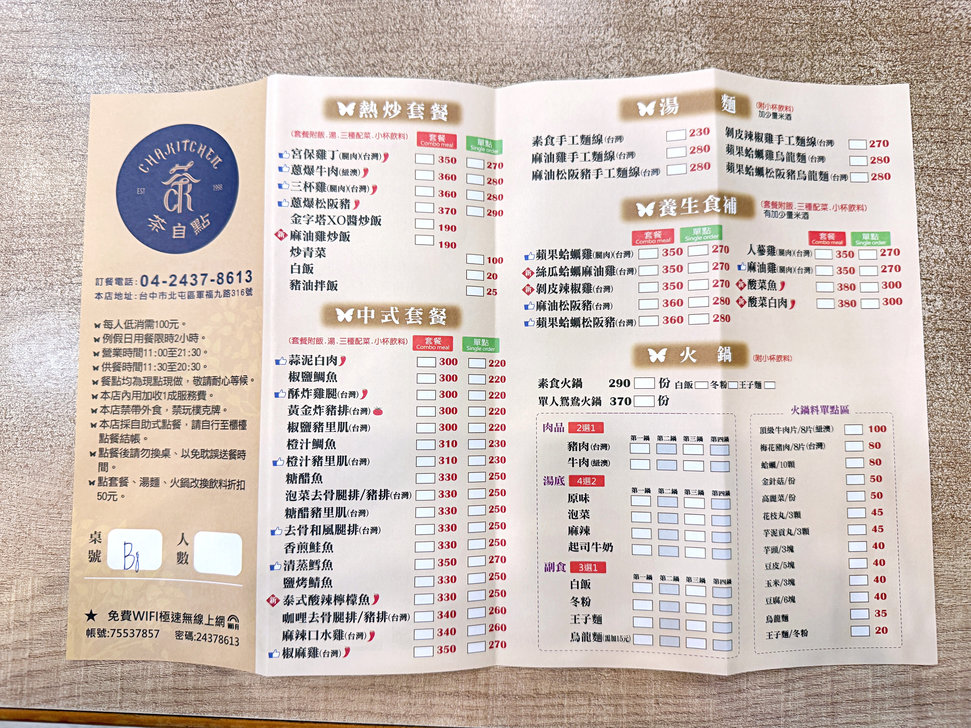 CHAKITCHEN
EST 1998
茶自點
訂餐電話:04-2437-8613
本店地址:台中市北屯區軍福九路316號
每人低消需100元。
例假日用餐限時2小時。
營業時間11:00至21:30。
供餐時間11:30至20:30。
餐點均為現點現做,敬請耐心等候。
本店內用加收1成服務費。
本店禁帶外食,禁玩撲克牌。
本店採自助式點餐,請自行至櫃檯
點餐結帳。
點餐後請勿換桌、以免耽誤送餐時
間。
點套餐、湯麵、火鍋改換飲料折扣
50元。
桌號 B8 人數
★ 免費WIFI極速無線上網 WiFi
帳號:75537857 密碼:24378613
熱炒套餐
(套餐附飯.湯.三種配菜.小杯飲料) 套餐 Combo meal 單點 Single order
宮保雞丁(腿肉)(台灣) 350 270
蔥爆牛肉(紐澳) 360 280
三杯雞(腿肉)(台灣) 360 280
蔥爆松阪豬 370 290
金字塔XO醬炒飯 190
新 麻油雞炒飯 190
炒青菜 100
白飯 20
豬油拌飯 25
中式套餐
(套餐附飯.湯.三種配菜.小杯飲料) 套餐 Combo meal 單點 Single order
蒜泥白肉 300 220
椒鹽鯛魚 300 220
酥炸雞腿(台灣) 300 220
黃金炸豬排(台灣) 300 220
椒鹽豬里肌(台灣) 300 220
橙汁鯛魚 310 230
橙汁豬里肌(台灣) 310 230
糖醋魚 330 250
泡菜去骨腿排/豬排(台灣) 330 250
糖醋豬里肌(台灣) 330 250
去骨和風腿排(台灣) 330 250
香煎鮭魚 330 250
清蒸鱈魚 350 270
鹽烤鯖魚 330 250
新 泰式酸辣檸檬魚 330 250
咖哩去骨腿排/豬排(台灣) 340 260
麻辣口水雞(台灣) 340 260
椒麻雞(台灣) 350 270
湯麵
(附小杯飲料)
加少量米酒
素食手工麵線(台灣) 230
麻油雞手工麵線(台灣) 280
麻油松阪豬手工麵線(台灣) 280
剝皮辣椒雞手工麵線(台灣) 270
蘋果蛤蠣雞烏龍麵(台灣) 280
蘋果蛤蠣松阪豬烏龍麵(台灣) 280
養生食補
(套餐附飯.三種配菜.小杯飲料)
有加少量米酒
套餐 Combo meal 單點 Single order
蘋果蛤蠣雞(腿肉)(台灣) 350 270
新 絲瓜蛤蠣麻油雞(台灣) 350 270
新 剝皮辣椒雞(台灣) 350 270
麻油松阪豬(台灣) 360 280
蘋果蛤蠣松阪豬(台灣) 360 280
套餐 Combo meal 單點 Single order
人蔘雞(腿肉)(台灣) 350 270
麻油雞(腿肉)(台灣) 350 270
新 酸菜魚 380 300
新 酸菜白肉 380 300
火鍋
(附小杯飲料)
素食火鍋 290 份 白飯 冬粉 王子麵
單人鴛鴦火鍋 370 份
肉品 2選1 第一鍋 第二鍋 第三鍋 第四鍋
豬肉(台灣)
牛肉(紐澳)
湯底 4選2 第一鍋 第二鍋 第三鍋 第四鍋
原味
泡菜
麻辣
起司牛奶
副食 3選1 第一鍋 第二鍋 第三鍋 第四鍋
白飯
冬粉
王子麵
烏龍麵(需加15元)
火鍋料單點區
頂級牛肉片/8片(紐澳) 100
梅花豬肉/8片(台灣) 80
蛤蠣/10顆 80
金針菇/份 50
高麗菜/份 50
花枝丸/3顆 45
芋泥貢丸/3顆 45
芋頭/3塊 40
豆皮/5塊 40
玉米/3塊 40
豆腐/6塊 40
烏龍麵 35
王子麵/冬粉 20